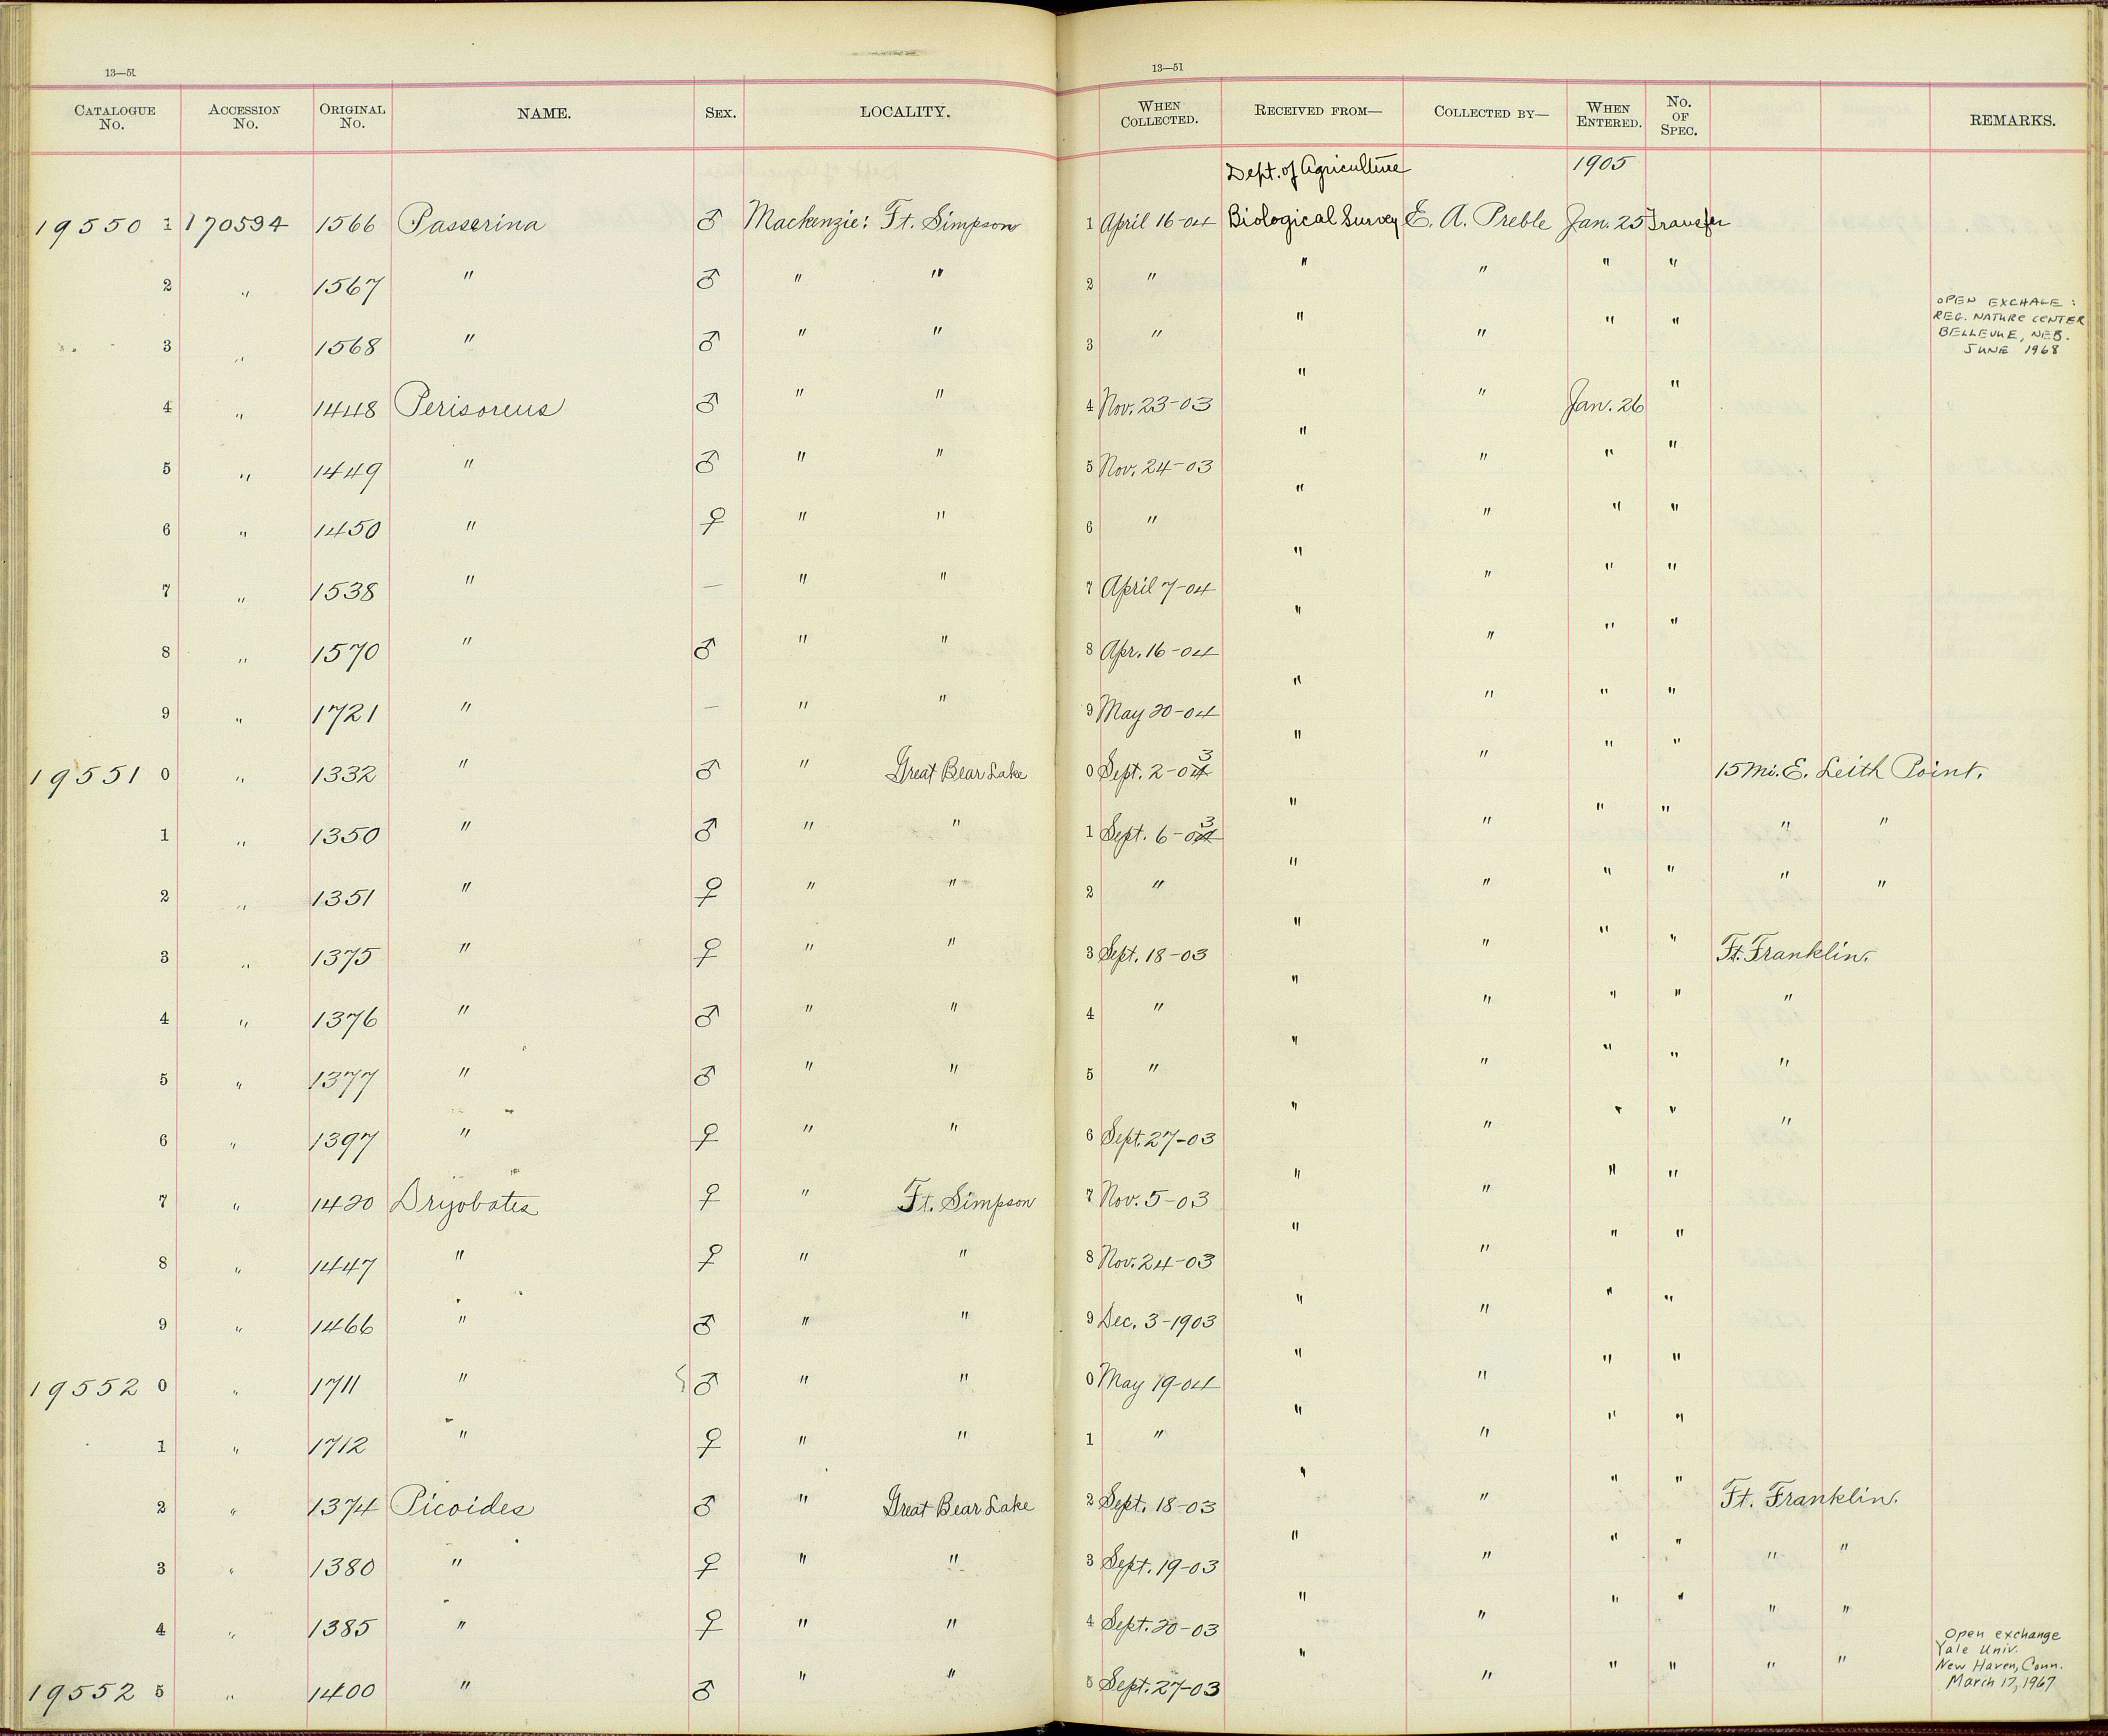 13—51
13—51
CATALOGUE No. ACCESSION No. ORIGINAL No. NAME. SEX. LOCALITY. WHEN COLLECTED. RECEIVED FROM— COLLECTED BY— WHEN ENTERED. No. OF SPEC. REMARKS.
Dept. of Agriculture 1905
19550 1 170594 1566 Passerina ♂ Mackenzie: Ft. Simpson 1 April 16-04 Biological Survey E. A. Preble Jan. 25 Transfer
2 " 1567 " ♂ " " 2 " " " " "
3 " 1568 " ♂ " " 3 " " " " " OPEN EXCHAGE: REG. NATURE CENTER BELLEVUE, NEB. JUNE 1968
4 " 1448 Perisoreus ♂ " " 4 Nov. 23-03 " " Jan. 26 "
5 " 1449 " ♂ " " 5 Nov. 24-03 " " " "
6 " 1450 " ♀ " " 6 " " " " "
7 " 1538 " — " " 7 April 7-04 " " " "
8 " 1570 " ♂ " " 8 Apr. 16-04 " " " "
9 " 1721 " — " " 9 May 20-04 " " " "
19551 0 " 1332 " ♂ " Great Bear Lake 0 Sept. 2-03 " " " " 15 Mi. E. Leith Point.
1 " 1350 " ♂ " " 1 Sept. 6-03 " " " " " "
2 " 1351 " ♀ " " 2 " " " " " " "
3 " 1375 " ♀ " " 3 Sept. 18-03 " " " " Ft. Franklin.
4 " 1376 " ♂ " " 4 " " " " " "
5 " 1377 " ♂ " " 5 " " " " " "
6 " 1397 " ♀ " " 6 Sept. 27-03 " " " " "
7 " 1420 Dryobates ♀ " Ft. Simpson 7 Nov. 5-03 " " " "
8 " 1447 " ♀ " " 8 Nov. 24-03 " " " "
9 " 1466 " ♂ " " 9 Dec. 3-1903 " " " "
19552 0 " 1711 " ♂ " " 0 May 19-04 " " " "
1 " 1712 " ♀ " " 1 " " " " "
2 " 1374 Picoides ♂ " Great Bear Lake 2 Sept. 18-03 " " " " Ft. Franklin.
3 " 1380 " ♀ " " 3 Sept. 19-03 " " " " " "
4 " 1385 " ♀ " " 4 Sept. 20-03 " " " " " "
19552 5 " 1400 " ♂ " " 5 Sept. 27-03 " " " " " " Open exchange Yale Univ. New Haven, Conn. March 17, 1967